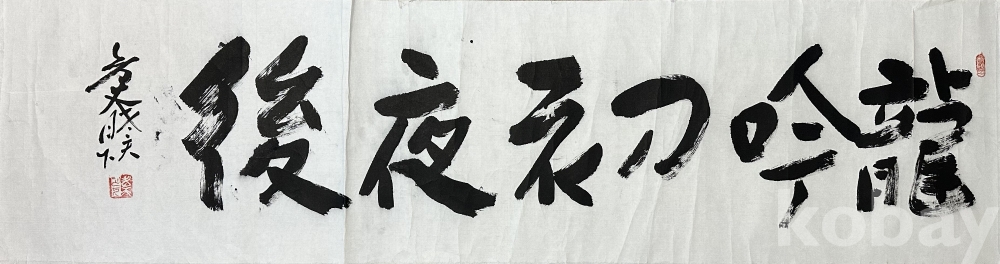 龍吟初夜後
kobay